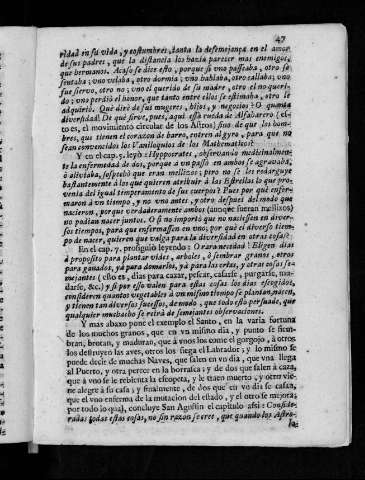 47
ridad en su vida, y costumbres, tanta la desemejança en el amor
de sus padres, que la distancia los hazia parecer mas enemigos,
que hermanos. Acaso se dize esto, porque si vno passeaba, otro se
sentaba; vno velaba, otro dormia; vno hablaba, otro callaba; vno
fue siervo, otro no; vno el querido de su madre, otro el no queri-
do; vno perdiò el honor, que tanto entre ellos se estimaba, otro le
adquiriò. Què dirè de sus mugeres, hijos, y negocios? O quanta
diversidad! De què sirve, pues, aqui essa rueda de Alfaharero (es-
to es, el movimiento circular de los Astros) sino de que los hom-
bres, que tienen el corazon de barro, rotèn al gyro, para que no
sean convencidos los Vaniloquios de los Mathematicos?
Y en el cap. 5. leyò: Hyppocrates, observando medicinalmen-
te la enfermedad de dos, porque à vn passo en ambos se agravaba,
ò aliviaba, sospechò que eran mellizos; pero no se les redarguye
bastantemente à los que quieren atribuir à las Estrellas lo que pro-
venia del igual temperamento de sus cuerpos? Pues por què enfer-
maron à vn tiempo, y no vno antes, y otro despues del modo que
nacieron, por que verdaderamente ambos (aunque fueran mellizos)
no podian nacer juntos. O si no importò que no naciessen en diver-
sos tiempos, para que enfermassen en vno; por què el diverso tiem-
po de nacer, quieren que valga para la diversidad en otras cosas?
En el cap. 7. prosiguiò leyendo: O rara necedad! Eligen dias
à proposito para plantar vides, arboles, ò sembrar granos, otros
para ganados, yà para domarlos, yà para las crias, y otras cosas se-
mejantes (esto es, dias para cazar, pescar, casarse, purgarse, mu-
darse, &c.) y si por esso valen para estas cosas los dias escogidos,
consideren quantos vegetables à vn mismo tiempo se plantan, nacen,
y tienen tan diversos sucessos, de modo, que todo esto persuade, que
qualquier muchacho se reirà de semejantes observaciones.
Y mas abaxo pone el exemplo el Santo, en la varia fortuna
de los muchos granos, que en vn mismo dia, y punto se siem-
bran, brotan, y maduran, que à vnos los come el gorgojo, à otros
los destruyen las aves, otros los siega el Labrador; y lo mismo se
puede decir de muchas Naves, que salen en vn dia, que vna llega
al Puerto, y otra perece en la borrasca; y de dos que salen à caza,
que à vno se le rebienta la escopeta, y le traen muerto, y otro vie-
ne alegre à su casa; y finalmente, de dos que en vn dia se casan,
que el vno enferma de la mutacion del estado, y el otro se mejora;
por todo lo qual, concluye San Agustin el capitulo assi: Conside-
radas todas estas cosas, no sin razon se cree, que quando los Astro-
lo-